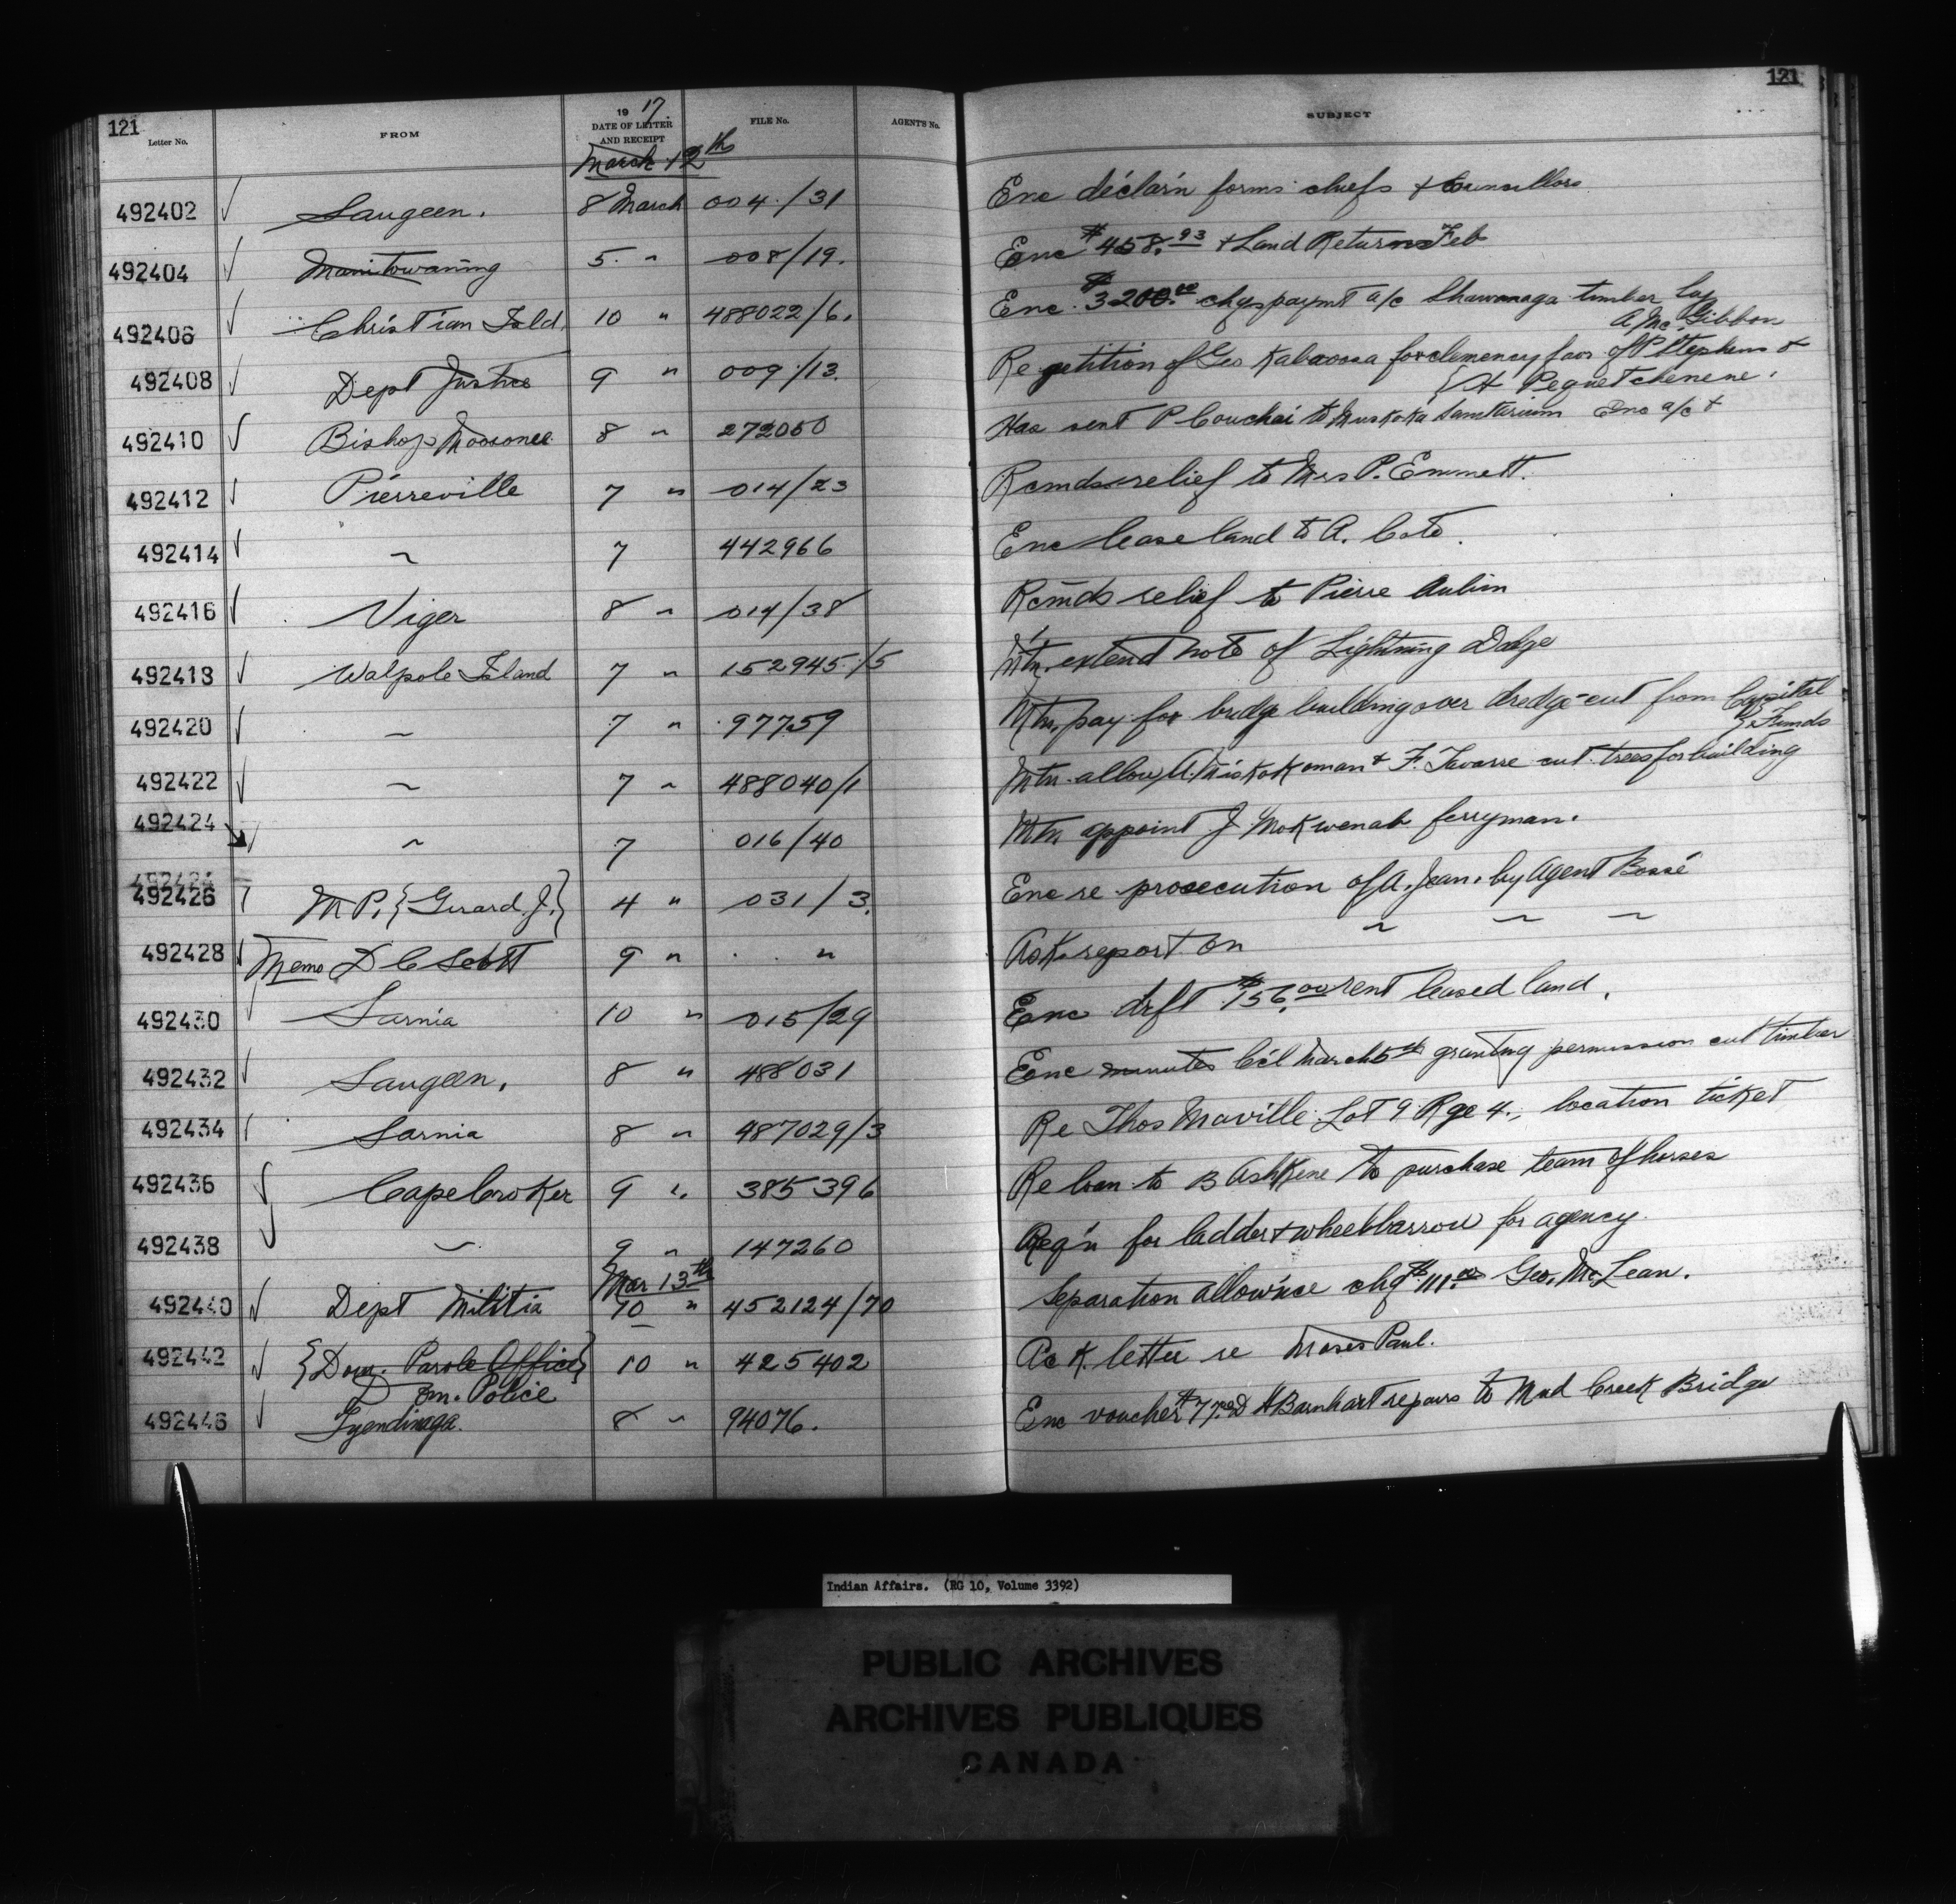 121 121
19 17.
Letter No. FROM DATE OF LETTER AND RECEIPT FILE No. AGENTS No. SUBJECT
March 12th
492402 Saugeen. 8 March 004/31 Enc déclar'n forms chiefs & Councillors
492404 Manitowaning 5 " 008/19. Enc $458.93 & Land Returns Feb
492406 Christian Isld. 10 " 488022/6. Enc. $3200.00 chqs paymt a/c Shawanaga timber by
A McGibbon
492408 Dept Justice 9 " 009/13. Re petition of Geo Kabaoosa for clemency favr of P Stephens &
{A Pequetchenene.
492410 Bishop Moosonee 8 " 272050 Has sent P Couchai to Muskoka Sanitarium Enc a/c &
492412 Pierreville 7 " 014/23 Rcmds relief to Mrs P. Emmett.
492414 ~ 7 442966 Enc lease land to A. Coté.
492416 Viger 8 " 014/38 Rcmds relief to Pierre Aubin
492418 Walpole Island 7 " 152945/5 Mtn. extend note of Lightning Dodge
492420 ~ 7 " 97759 Mtn. pay for bridge building over dredge-cut from Capital
} Funds
492422 ~ 7 " 488040/1 Mtn allow A. Miskokoman & F. Tavarre cut trees for building
492424 ~ 7 016/40 Mtn appoint J. Mokwenah ferryman.
492424
492426 M P, {Girard J.} 4 " 031/3. Enc re prosecution of A. Jean. by Agent Bossé
492428 Memo D C Scott 9 " " Ask report on ~ ~ ~
492430 Sarnia 10 " 015/29 Enc drft $156.00 rent leased land.
492432 Saugeen, 8 " 488031 Enc minutes C'cl March 5th granting permission cut timber
492434 Sarnia 8 " 487029/3 Re Thos Maville Lot 9 Rge 4., location ticket
492436 Cape Croker 9 " 385396 Re loan to B Ashkene to purchase team of horses
492438 ~ 9 " 147260 Req'n for ladder & wheelbarrow for agency
Mar 13th
492440 Dept Militia 10 " 452124/70 Separation allow'nce chq $111.00 Geo. McLean.
492442 {Dom. Parole Office} 10 " 425402 Ack letter re Moses Paul.
Dom. Police
492446 Tyendinaga. 8 " 94076. Enc voucher $7 A Barnhart repairs to Mud Creek Bridge
Indian Affairs. (RG 10, Volume 3392)
PUBLIC ARCHIVES
ARCHIVES PUBLIQUES
CANADA